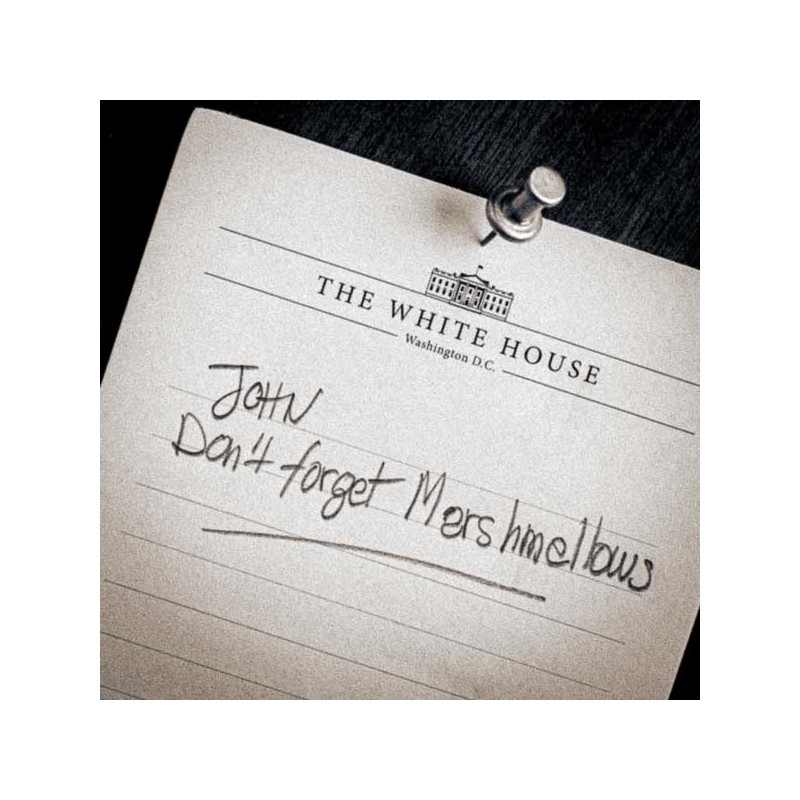 THE WHITE HOUSE
Washington D.C.
JOHN
Don't forget Marshmellows